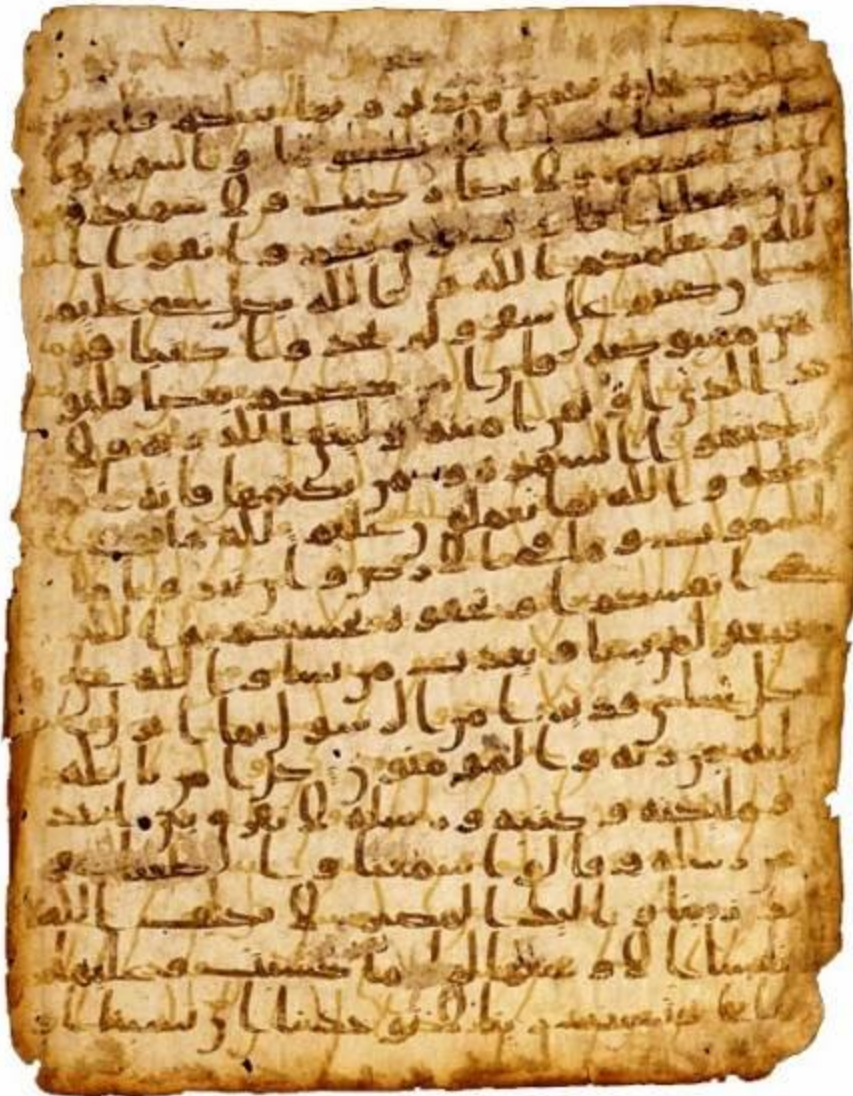 تديرو نها بينكم فليس
الا تكتبوها واشهدوا
ولا يضار كتب ولا شهيد و
ان تفعلوا فانه فسوق بكم واتقوا ا
لله ويعلمكم الله والله بكل شي عليم
وان كنتم على سفر ولم تجدوا كتبا فر
هن مقبوضه فان امن بعضكم بعضا فليو
د الذي اوتمن امنته وليتق الله ربه ولا
تكتموا الشهده ومن يكتمها فانه ا
ثم قلبه والله بما تعملون عليم لله ما في
السموت وما في الارض وان تبدوا ما
في انفسكم او تخفوه يحسبكم به الله
فيغفر لمن يشا ويعذب من يشا والله على
كل شاي قدير امن الرسول بما انزل
اليه من ربه والمومنون كل امن بالله
وملئكته وكتبه ورسله لا نفرق بين احد
من رسله وقالوا سمعنا واطعنا غفر
نك ربنا واليك المصير لا يكلف الله
نفسا الا وسعها لها ما كسبت وعليها
ما اكتسبت ربنا لا تواخذنا ان نسينا ا